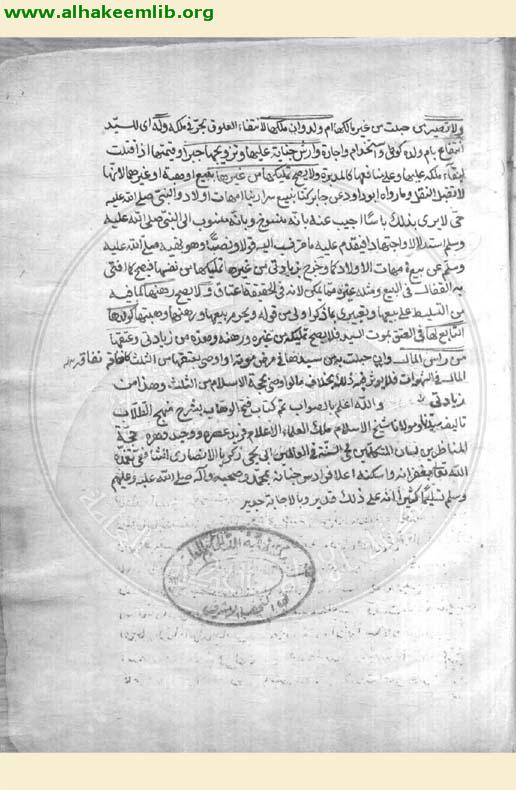 www.alhakeemlib.org
ولا تصير من حبلت من غير مالكها ام ولد وان ملكها لانتفاء العلوق بحر في ملكه وله اى للسيد
انتفاع بام ولده كوطء واستخدام واجارة وارش جناية عليها وتزويجها جبرا وقيمتها اذا قتلت
لبقاء ملكه عليها وعلى منافعها كالمدبرة ولا يصح تمليكها من غيرها ببيع او هبة او غيرهما لانها
لا تقبل النقل وما رواه ابو داود عن جابر كنا نبيع سرارينا امهات اولاد والنبي صلى الله عليه
حى لا يرى بذلك باسا اجيب عنه بانه منسوخ وبانه منسوب الى النبي صلى الله عليه
وسلم استدلالا واجتهادا فيقدم عليه ما نسب اليه قولا ونصا وهو نهيه صلى الله عليه
وسلم عن بيع امهات الاولاد كما وخرج بزيادتى من غيرها تمليكها من نفسها فيصح كما افتى
به القفال في البيع ومثله غيره مما يمكن لانه في الحقيقة اعتاق ولا يصح رهنها لما فيه
من التسليط على بيعها وتعبيرى بما ذكر اولى من قوله ويحرم بيعها ورهنها وهبتها كولدها
التابع لها في العتق بموت السيد فلا يصح تمليكه من غيره ورهنه وهذه من زيادتى وعتقها
من راس المال وان حبلت به من سيدها في مرض موته او اوصى بعتقها من الثلث كانفاقه
المال في الشهوات فلا يؤثر فيه ذلك بخلاف ما لو اوصى بحجة الاسلام من الثلث وهذا من
زيادتى والله اعلم بالصواب تم كتاب فتح الوهاب بشرح منهج الطلاب
تاليف سيدنا ومولانا شيخ الاسلام ملك العلماء الاعلام فريد عصره ووحيد دهره حجة
المناظرين لسان المتكلمين محى السنة في العالمين ابى يحيى زكريا الانصارى الشافعى تغمده
الله تعالى بغفرانه واسكنه اعلا فراديس جنانه بمحمد وصحبه وآله صلى الله عليه وعليهم
وسلم تسليما كثيرا انه على ذلك قدير وبالاجابة جدير